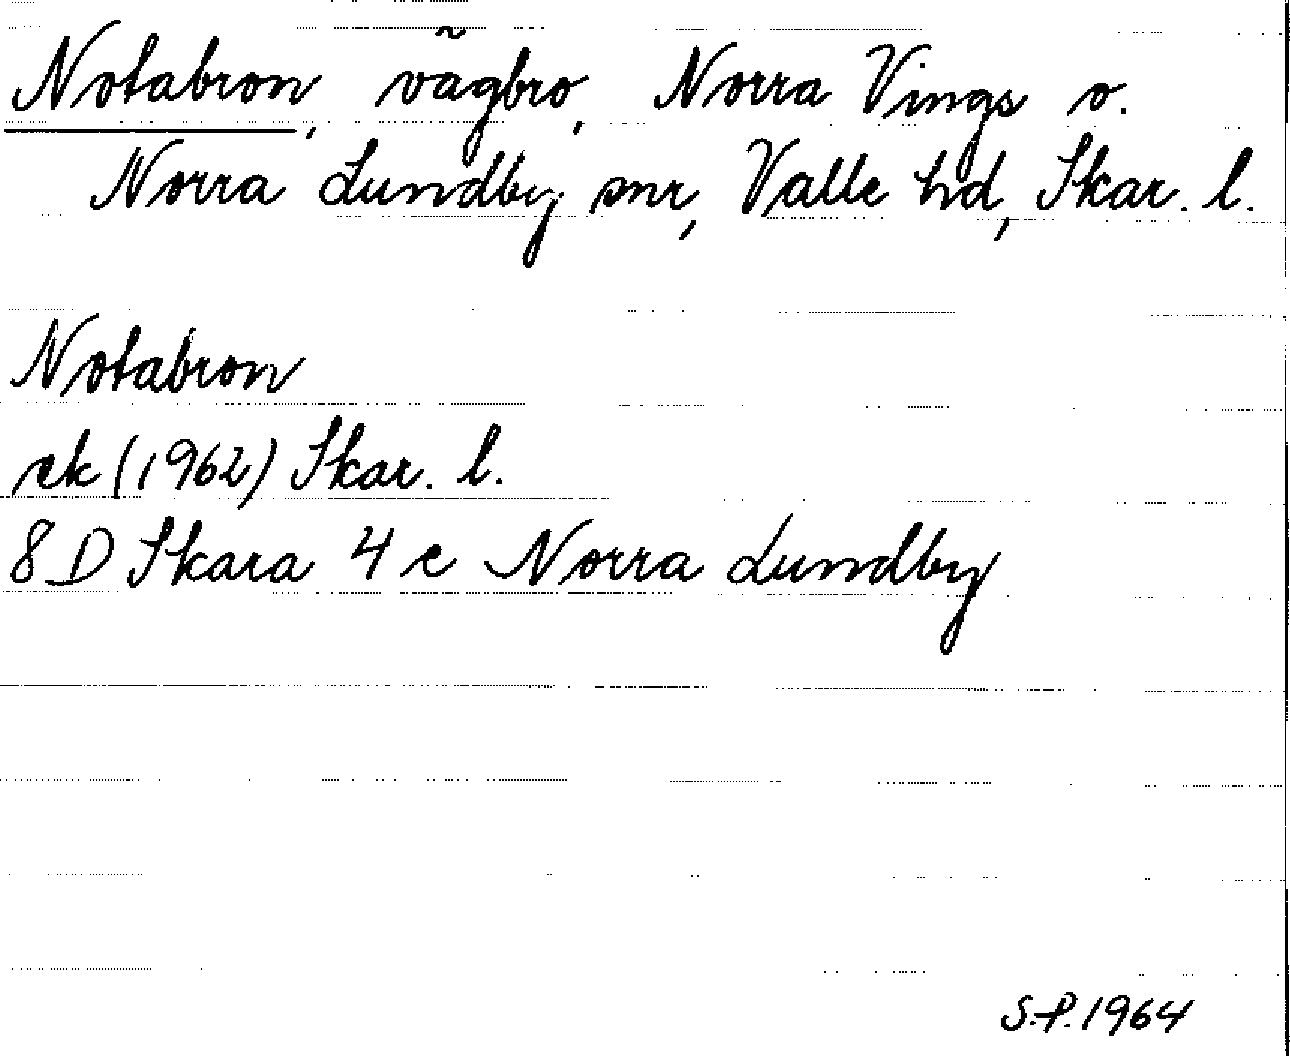 Notabron, vägbro, Norra Vings o.
Norra Lundby snr, Valle hd, Skar. l.
Notabron
ek (1962) Skar. l.
8 D Skara 4 e Norra Lundby
S.P. 1964